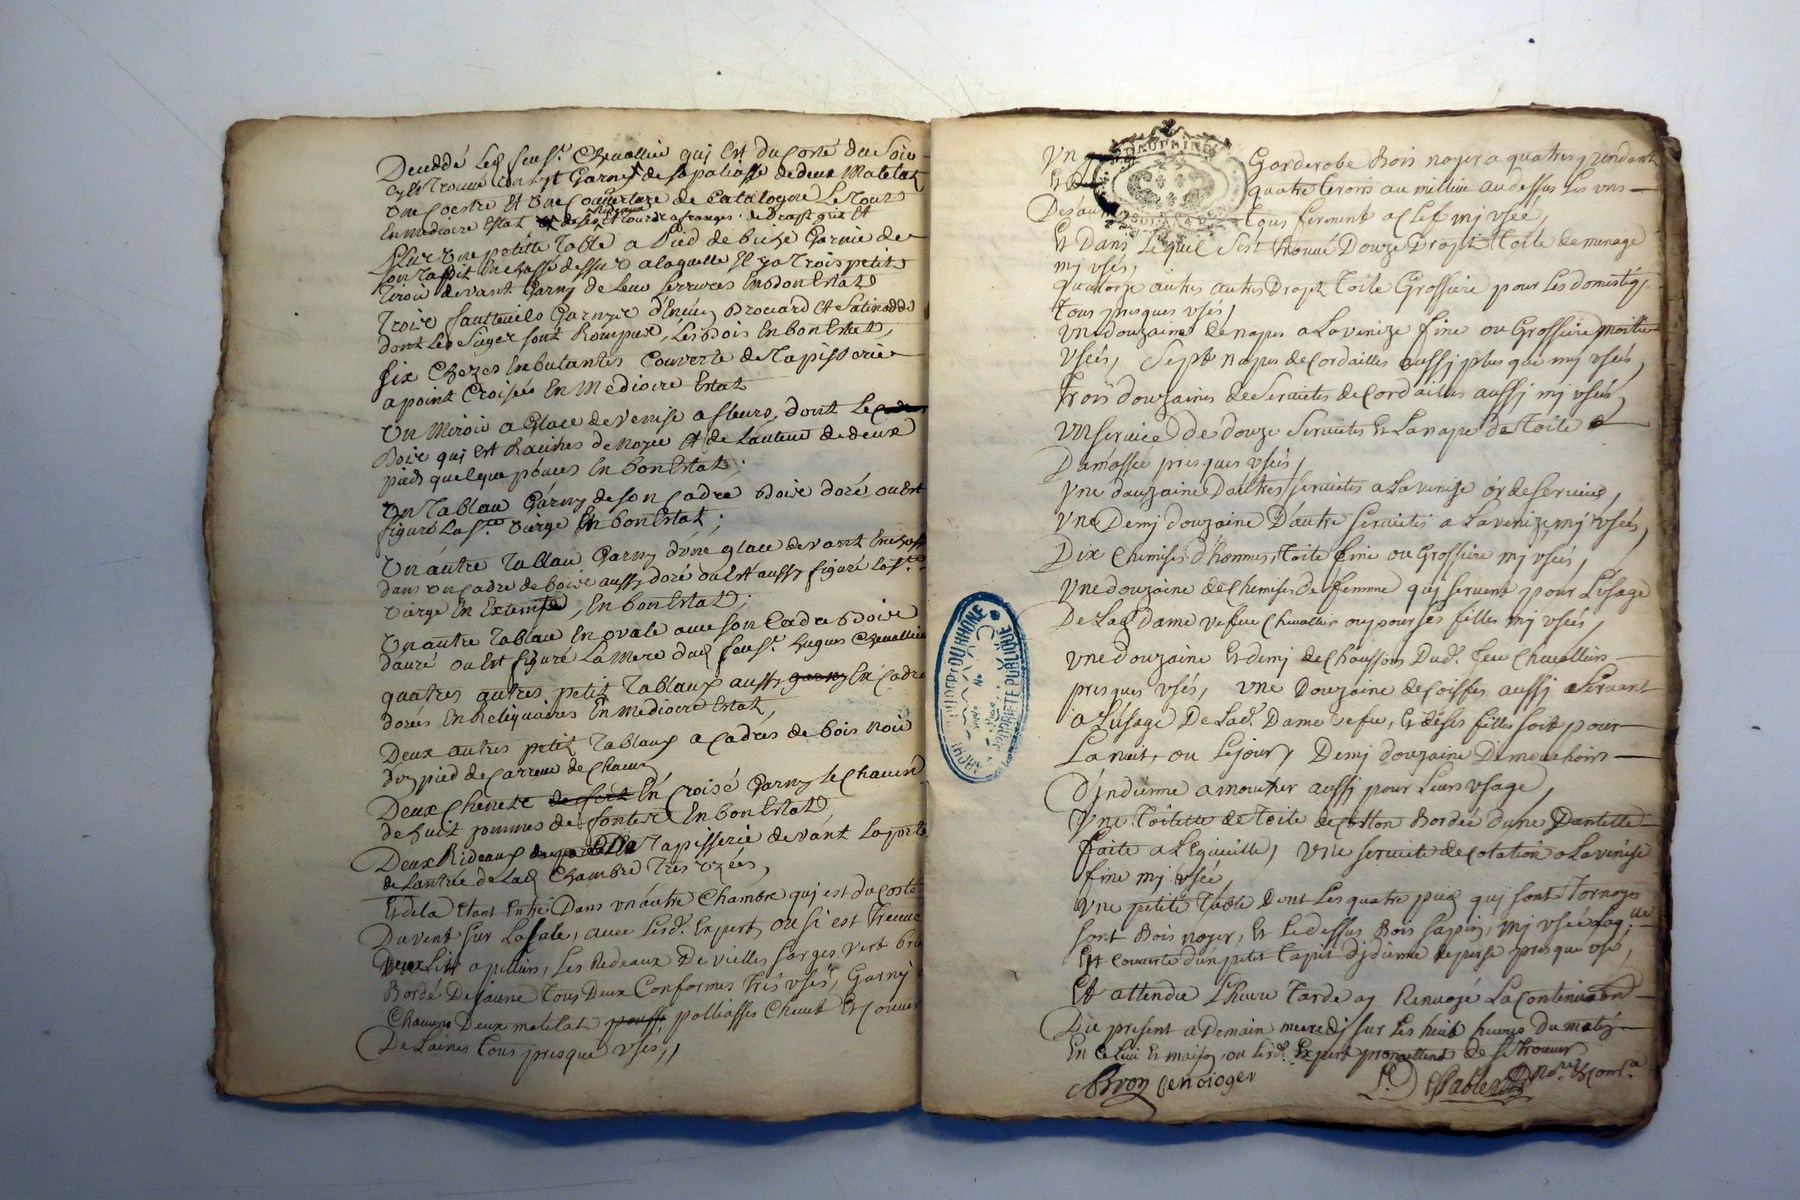 Decedé Led. feu sr. Chevallier qui Est du Costé du Soir
ay Trouvé un Lit Garny de sa paliasse de deux Matelat
une Coestre Et une Couverture de Catalogne Le Tout
En mediocre Estat rideaux a franges de drap gris Et
Plus une petitte Table a Pied de biche Garnie de
son Tappit dessus a laquelle Il y a Trois petits
Tiroir devant Garny de Leur serrures En bon Estat
Trois fauteuils Garnyes Brocard Et Satinadde
dont Les Sieges sont Rompus, Les Bois En bon Estat,
Six Chezes Enbutantes Couverte de Tapisserie
a point Croisée En Mediocre Estat
Un Miroir a Glace de Venise a fleurs, dont Le
Bois qui Est Racines de Noyer Et de Lauteur de deux
pieds quelque pouces En bon Estat;
Un Tablau Garny de son Cadre Bois doré ou Est
figuré La Ste. Vierge En bon Estat;
Un autre Tablau Garny d'une glace devant
dans un Cadre de bois aussy doré ou Est aussy figuré La Ste.
Vierge En Extemse, En bon Estat;
Un autre Tablau En ovale avec son Cadre Bois
dauré ou Est figuré La Mere dud. feu sr. hugues Chevallier
quatres autres petit Tablaux aussy garny En Cadre
dorés En Reliquaires En Mediocre Estat,
Deux autres petit Tablaux a Cadres de bois noir
d'un pied de Carreur de Chacun
Deux Chenets de fert En Croisé Garny le Chacun
de huit pommes de fonte En bon Estat
Deux Rideaux Tapisserie devant La porte
de Lantrée de Lad. Chambre Tres Uzées,
Et de la Etant Entré Dans un autre Chambre qui est du Costé
Du vent sur La sale, avec Lesd. Expert, ou si est Treuvé
Deux Lits a pilliers, Les Redeaux De vielles sarges vert
Bordé De jaune tous Deux Conformes Tres usés, Garny
Chacuns Deux matelat palliasses Chevet Et Couvert
De Laines tous presque usés,,
Un Garderobe Bois noyer a quatres pendant
Et quatre tiroirs au millieu au dessus Les uns
Des autres tous ferment a Clef mi usée,
Et Dans Lequel s'est trouvé Douze Drapt toile de menage
mi usés,
quatorze autres Drapt toile Grossiere pour Les domestiq.
tous presques usés,
une douzaine de napes a La venize fine ou Grossiere moitié
usés, Sept napes de Cordailles aussi plus que mi usés,
trois douzaines de Serviettes de Cordailles aussi mi usés,
un service de douze Serviettes Et La nape de toile
Damassée presques usés,
Une douzaine Dautres serviettes a La venize
Une Demi douzaine D'autre Serviettes a La venize mi usées,
Dix Chemises d'hommes toile fine ou Grossiere mi usés,
Une douzaine de Chemises De femme qui servent pour L'usage
De Lad. Dame vefve Chevallier ou pour ses filles mi usés,
une douzaine Et demi de Chaussons Dud. feu Chevallier
presques usés, une Douzaine de Coiffes aussi Servant
a L'usage De Lad. Dame vefve, Et de ses filles soit pour
La nuit, ou Le jour, Demi douzaine De mouchoirs
d'jndienne a moucher aussi pour Leurs usage,
Une Toilette de toile de Cotton Bordée d'une Dantelle
faite a L'Eguille, Une serviette de Colation a La venise
fine mi usée,
Une petite Table Dont Les quatre pieds qui sont Tornoyes
sont Bois noyer, Et Le dessus Bois Sapin, mi usée Laqlle.
Est Couverte d'un petit tapit d'jdienne de perse presque usé,
Et attendu L'heure Tarde ay Renvoyé La Continuaon
Du present a Demain mecredy sur Les huit heures Du matin
En Ce Lieu Et maison ou Lesd. Expert promettent de se trouver